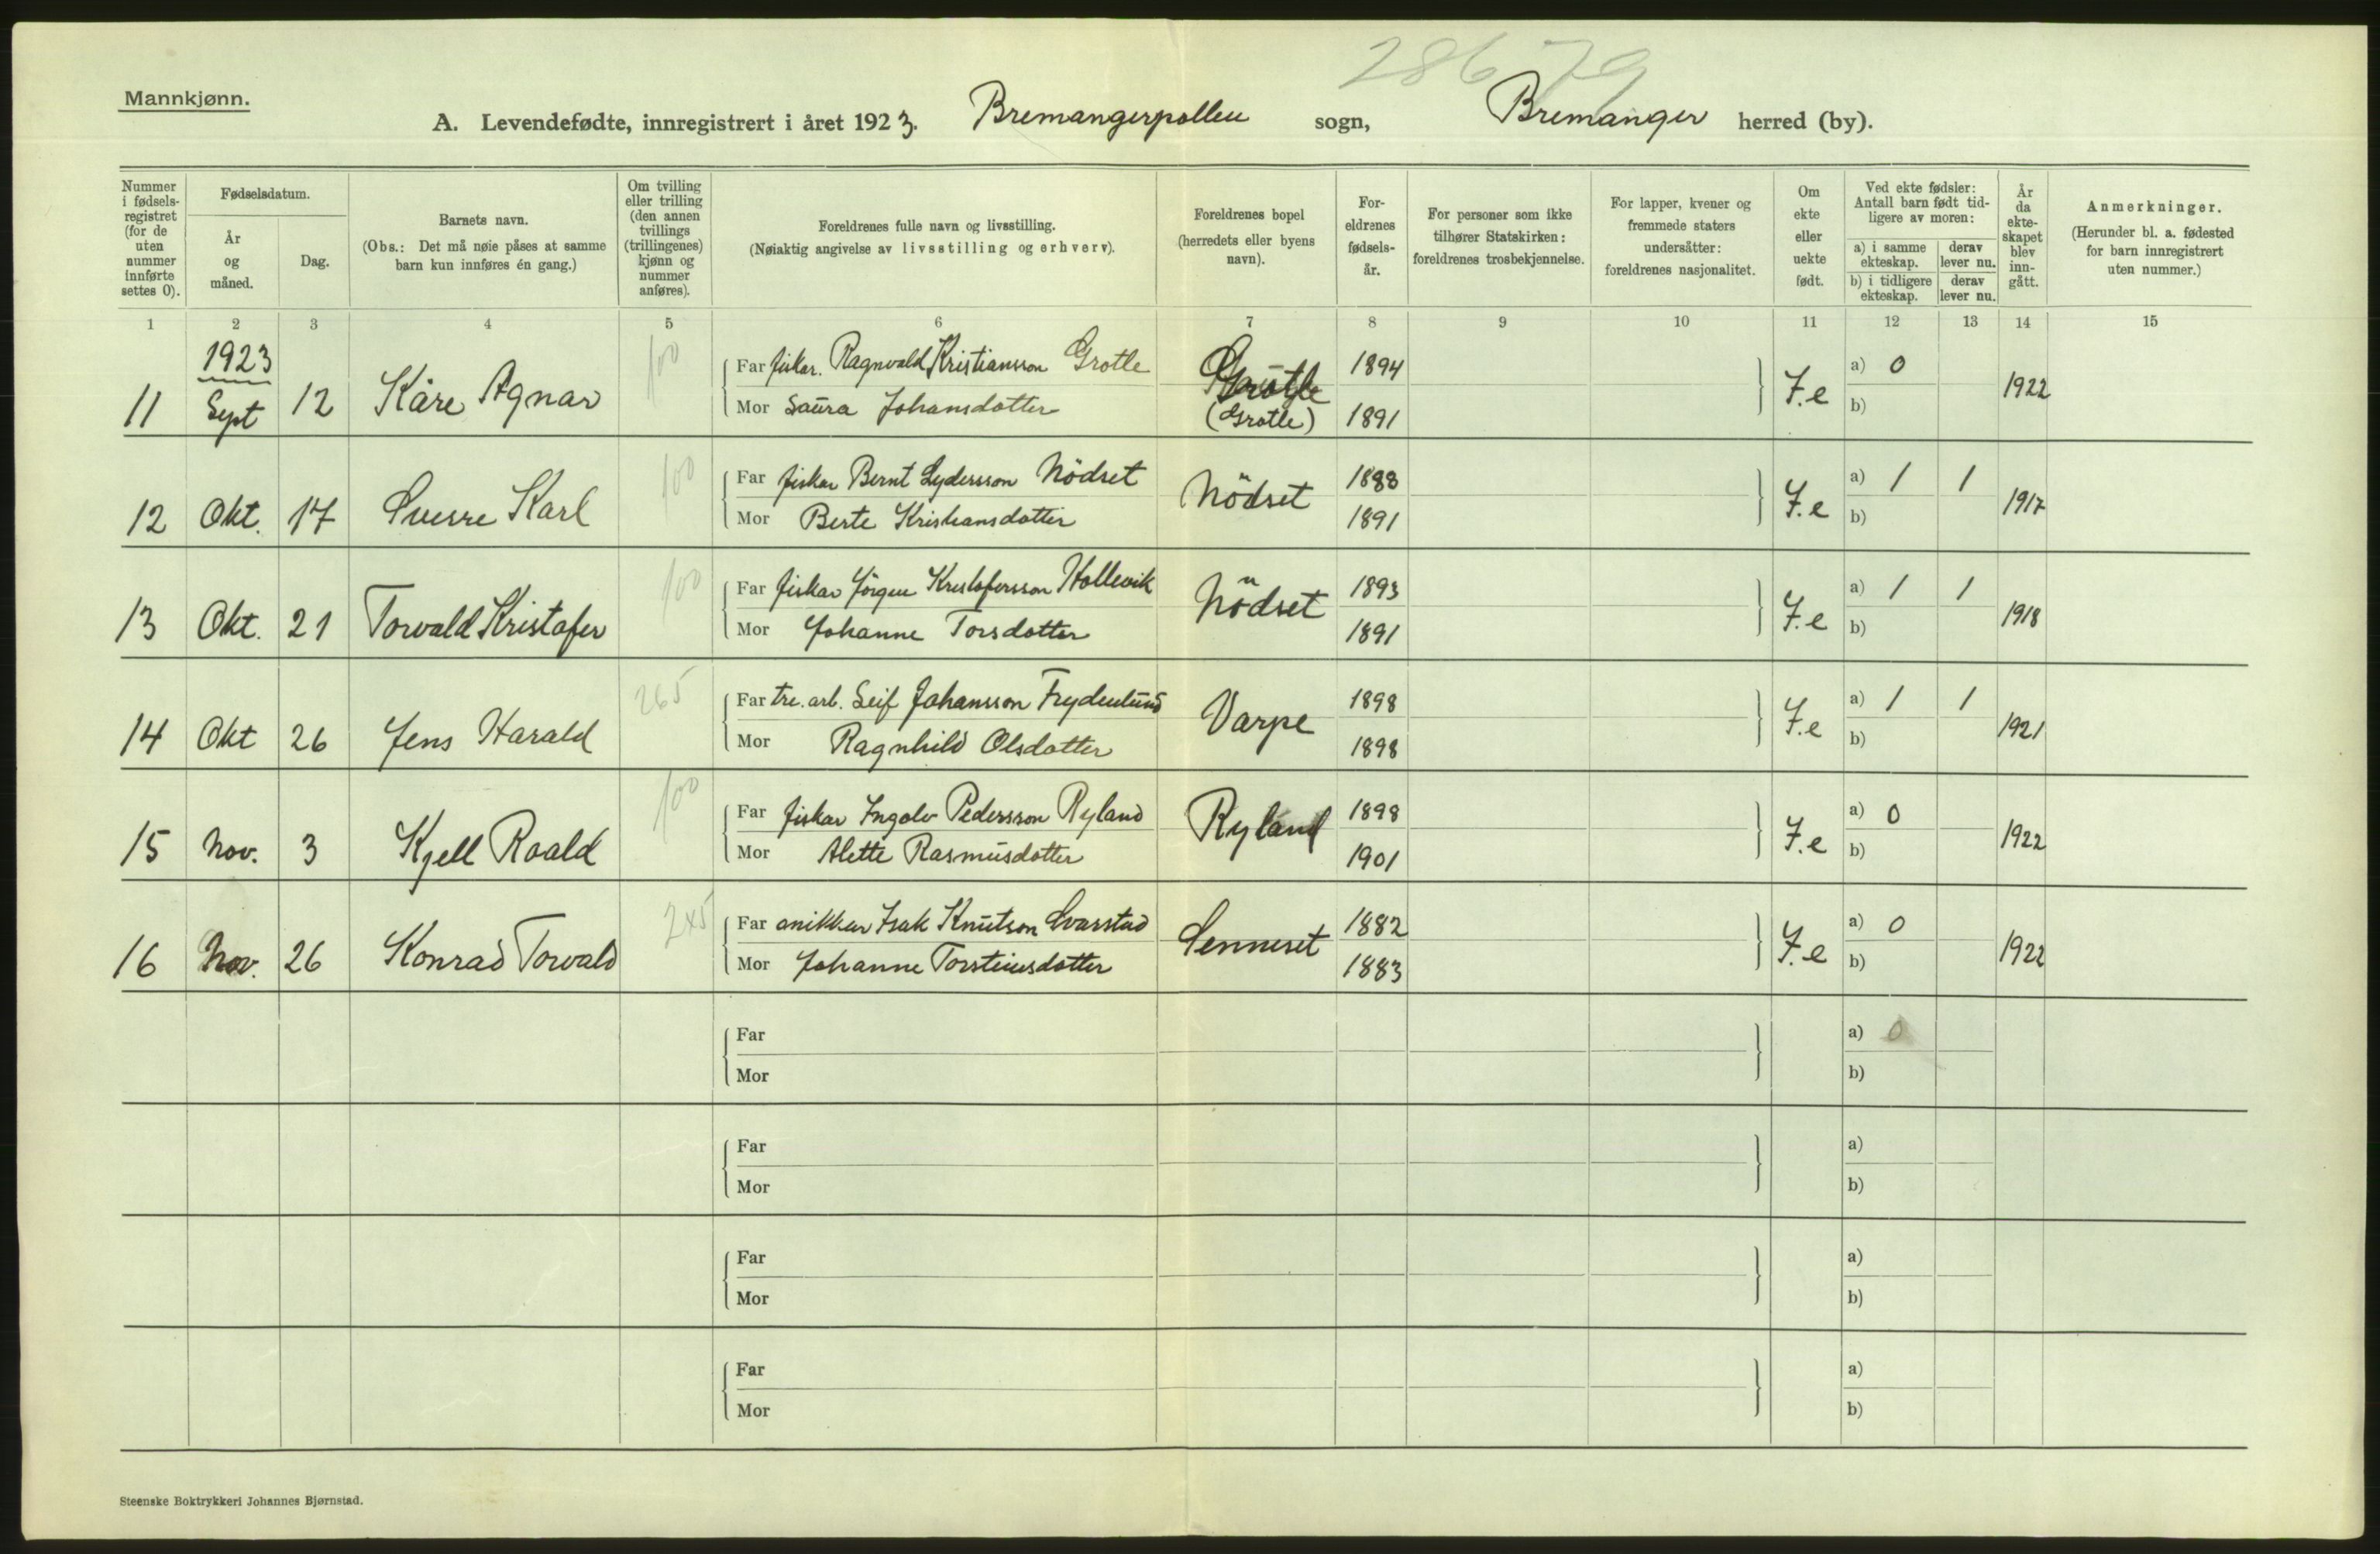 28679
Mannkjønn.
A. Levendefødte, innregistrert i året 1923. Bremangerpollen sogn, Bremanger herred (by).
Nummer i fødsels-registret (for de uten nummer innførte settes 0).
Fødselsdatum.
År og måned.
Dag.
Barnets navn.
(Obs.: Det må nøie påses at samme barn kun innføres én gang.)
Om tvilling eller trilling (den annen tvillings (trillingenes) kjønn og nummer anføres).
Foreldrenes fulle navn og livsstilling.
(Nøiaktig angivelse av livsstilling og erhverv).
Foreldrenes bopel (herredets eller byens navn).
For-eldrenes fødsels-år.
For personer som ikke tilhører Statskirken: foreldrenes trosbekjennelse.
For lapper, kvener og fremmede staters undersåtter: foreldrenes nasjonalitet.
Om ekte eller uekte født.
Ved ekte fødsler: Antall barn født tid-ligere av moren:
a) i samme ekteskap.
derav lever nu.
b) i tidligere ekteskap.
derav lever nu.
År da ekte-skapet blev inn-gått.
Anmerkninger.
(Herunder bl. a. fødested for barn innregistrert uten nummer.)
1 2 3 4 5 6 7 8 9 10 11 12 13 14 15
1923
11 Sept 12 Kåre Agnar 100
Far fiskar. Ragnvald Kristiansson Grotle 1894
Mor Laura Johansdotter (Grotle) 1891
F.e a) 0 b) 1922
12 Okt. 17 Sverre Karl 100
Far fiskar Bernt Lydersson Nödset Nödset 1888
Mor Berte Kristiansdotter 1891
F.e a) 1 1 b) 1917
13 Okt. 21 Torvald Kristofer 100
Far fiskar Jörgen Kristofersson Hollevik Nödset 1893
Mor Johanne Torsdotter 1891
F.e a) 1 1 b) 1918
14 Okt 26 Jens Harald 265
Far tre.arb. Leif Johansson Frydenlund Varpe 1898
Mor Ragnhild Olsdotter 1898
F.e a) 1 1 b) 1921
15 Nov. 3 Kjell Roald 100
Far fiskar Ingolv Pedersson Ryland Ryland 1898
Mor Alette Rasmusdotter 1901
F.e a) 0 b) 1922
16 Nov. 26 Konrad Torvald 245
Far snikkar Isak Knutson Svarstad Senneset 1882
Mor Johanne Torsteinsdotter 1883
F.e a) 0 b) 1922
Far a) 0
Mor b)
Far a)
Mor b)
Far a)
Mor b)
Far a)
Mor b)
Steenske Boktrykkeri Johannes Bjørnstad.